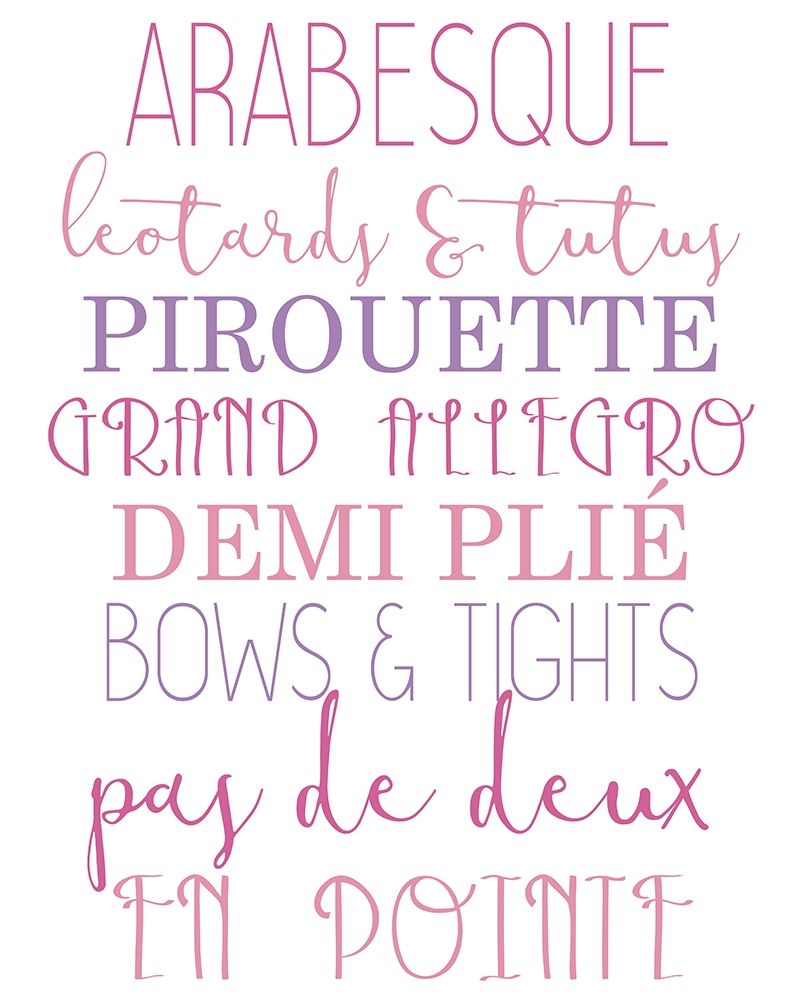 ARABESQUE
leotards & tutus
PIROUETTE
GRAND ALLEGRO
DEMI PLIÉ
BOWS & TIGHTS
pas de deux
EN POINTE